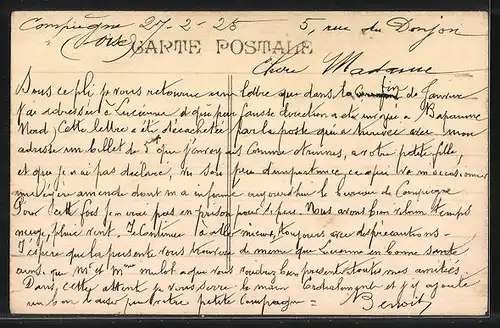 Compiegne 27-2-25 5, rue du Donjon
(Oise)
CARTE POSTALE
Chere Madame
Sous ce pli je vous retourne une lettre que dans la fin de Janvier
j'ai adressée à Lucienne et qui par fausse direction a été à Bapaume
Nord) Cette lettre a été décachetée par la poste qui a trouvée avec mon
adresse un billet de 5 que j'envoyais comme étrennes, a votre petite fille,
et que je n'ai pas déclaré, vu son peu d'importance, ce qui va m'occasionner
une amende dont m'a informé aujourd'hui le bureau de Compiegne
Pour cette fois je n'irai pas en prison pour Nous avons bien vilain temps
neige, pluie vent. Je continue à aller mieux, toujours avec des précautions -
J'espère que la présente vous trouvera de meme que Lucienne en bonne santé
ainsi que Mr et Mme mulot a qui vous voudrez bien présenter toutes mes amitiés
Dans cette attente je vous serre la main cordialement et j'y ajoute
un bon baiser pour votre petite Compagne = Benoit